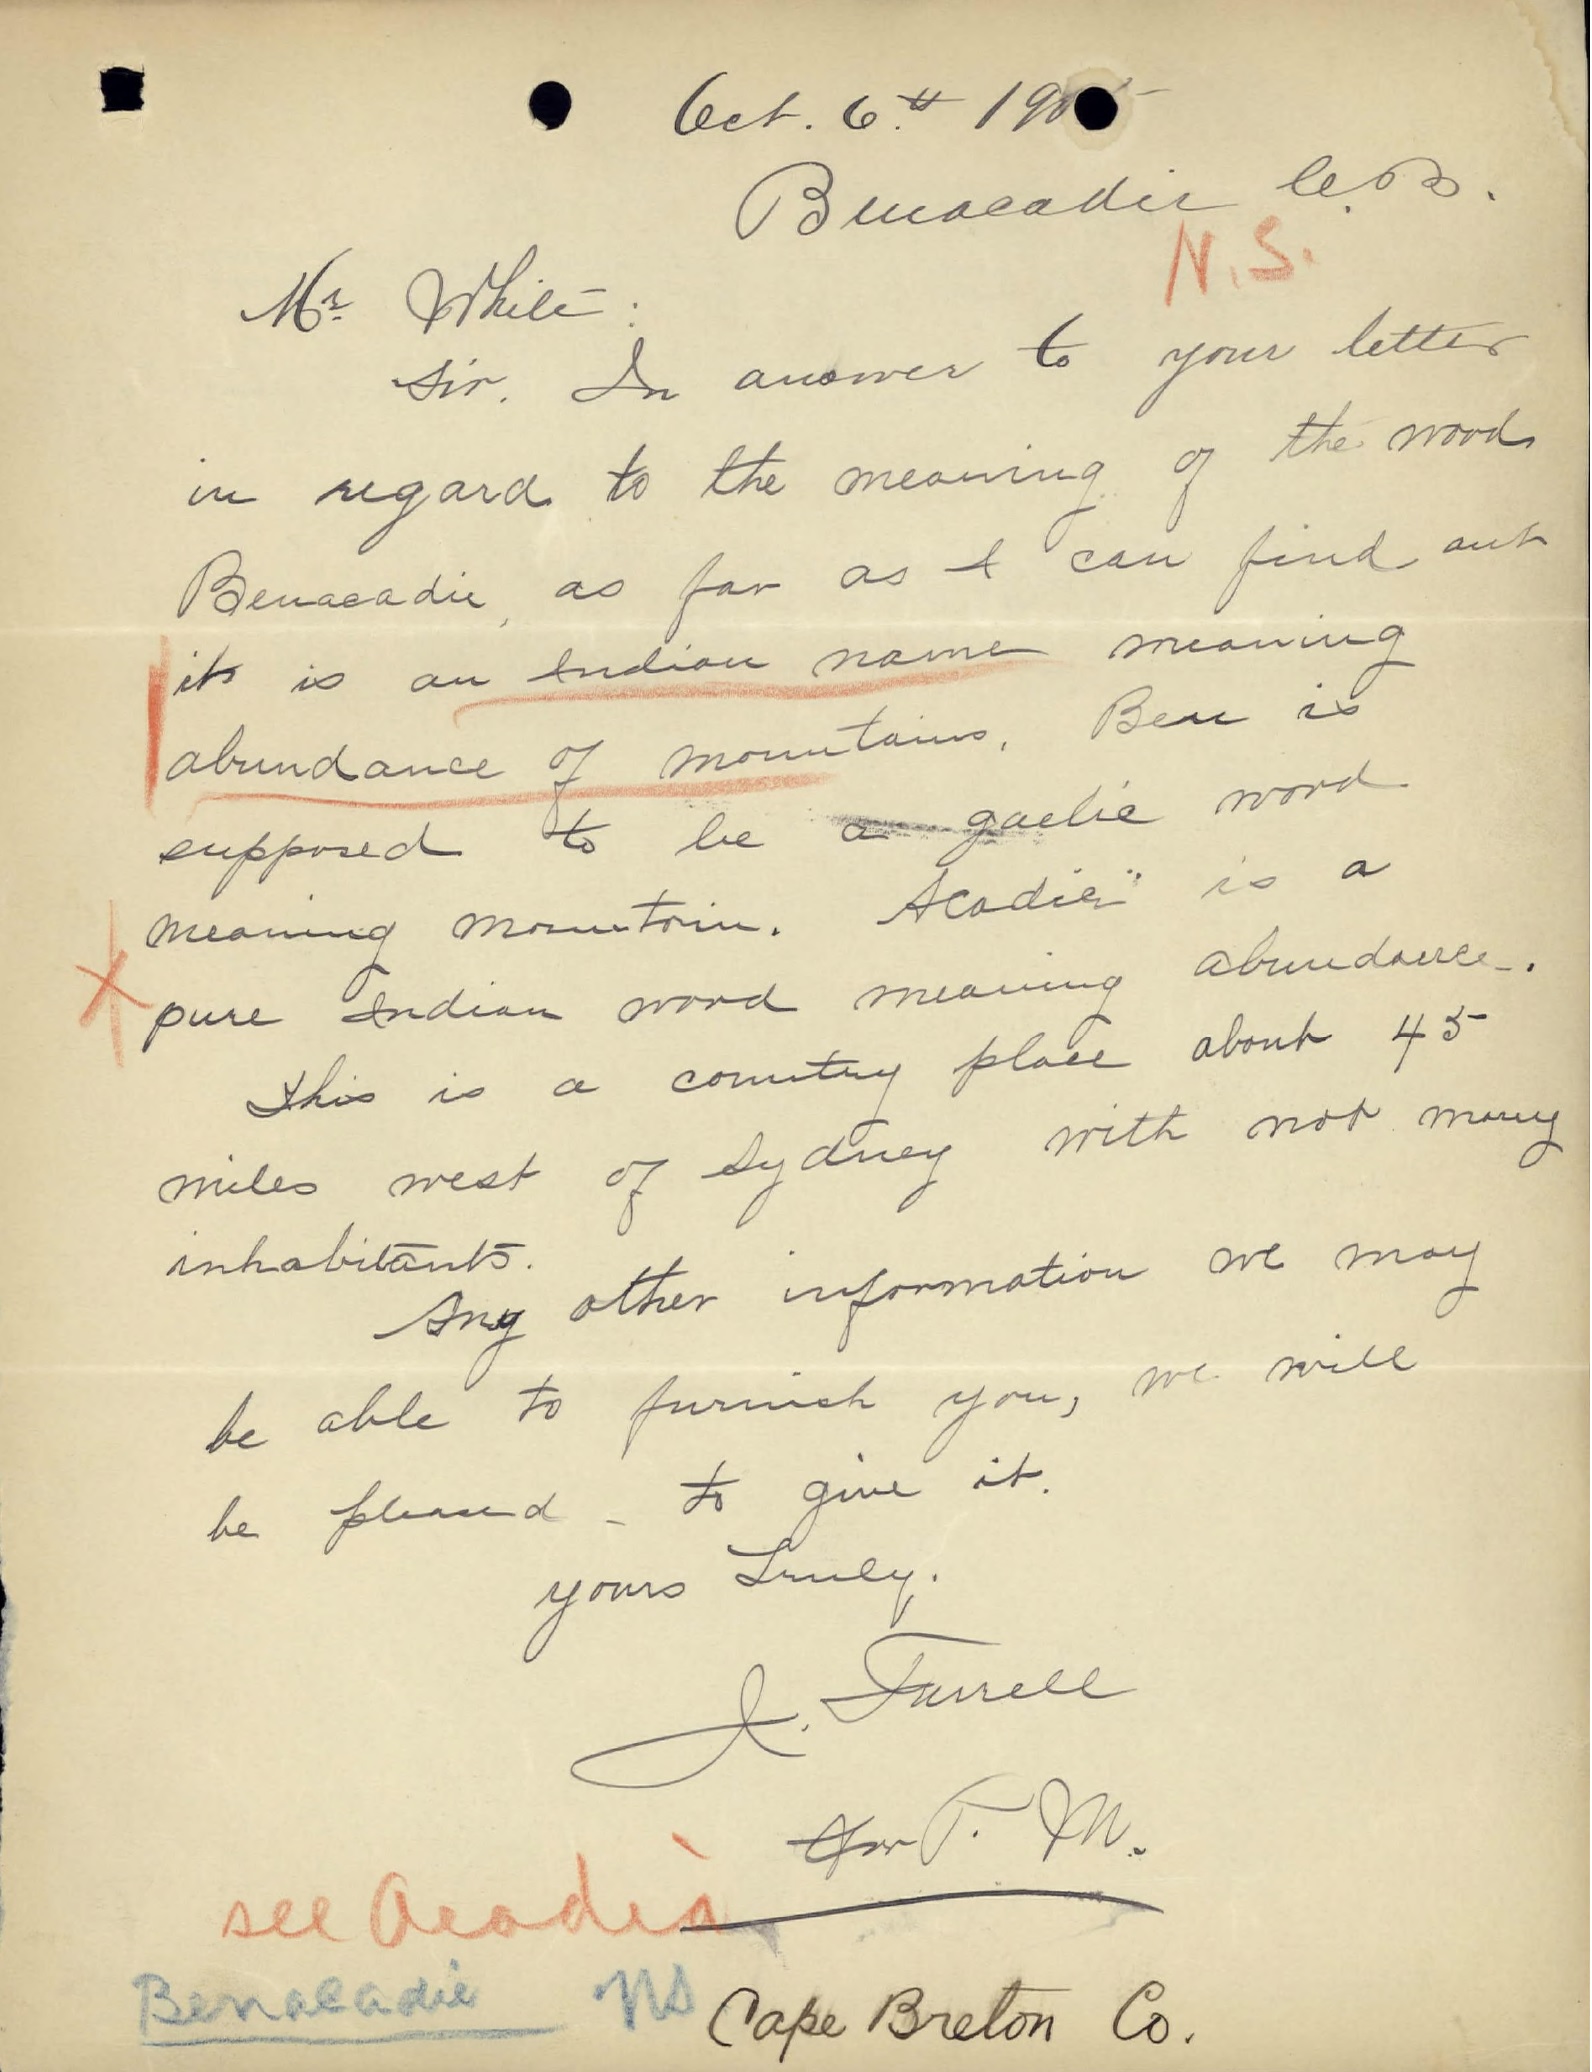 Oct. 6th 190
Benacadie C.B.
N.S.
Mr. White:
Sir. In answer to your letter
in regard to the meaning of the word
Benacadie, as far as I can find out
it is an Indian name meaning
abundance of mountains. Ben is
supposed to be a gaelic word
meaning mountain. Acadie" is a
pure Indian word meaning abundance.
This is a country place about 45
miles west of Sydney with not many
inhabitants.
Any other information we may
be able to furnish you, we will
be pleased - to give it.
yours Truly.
J. Farrell
P. M.
see Acadia
Benacadie NS Cape Breton Co.